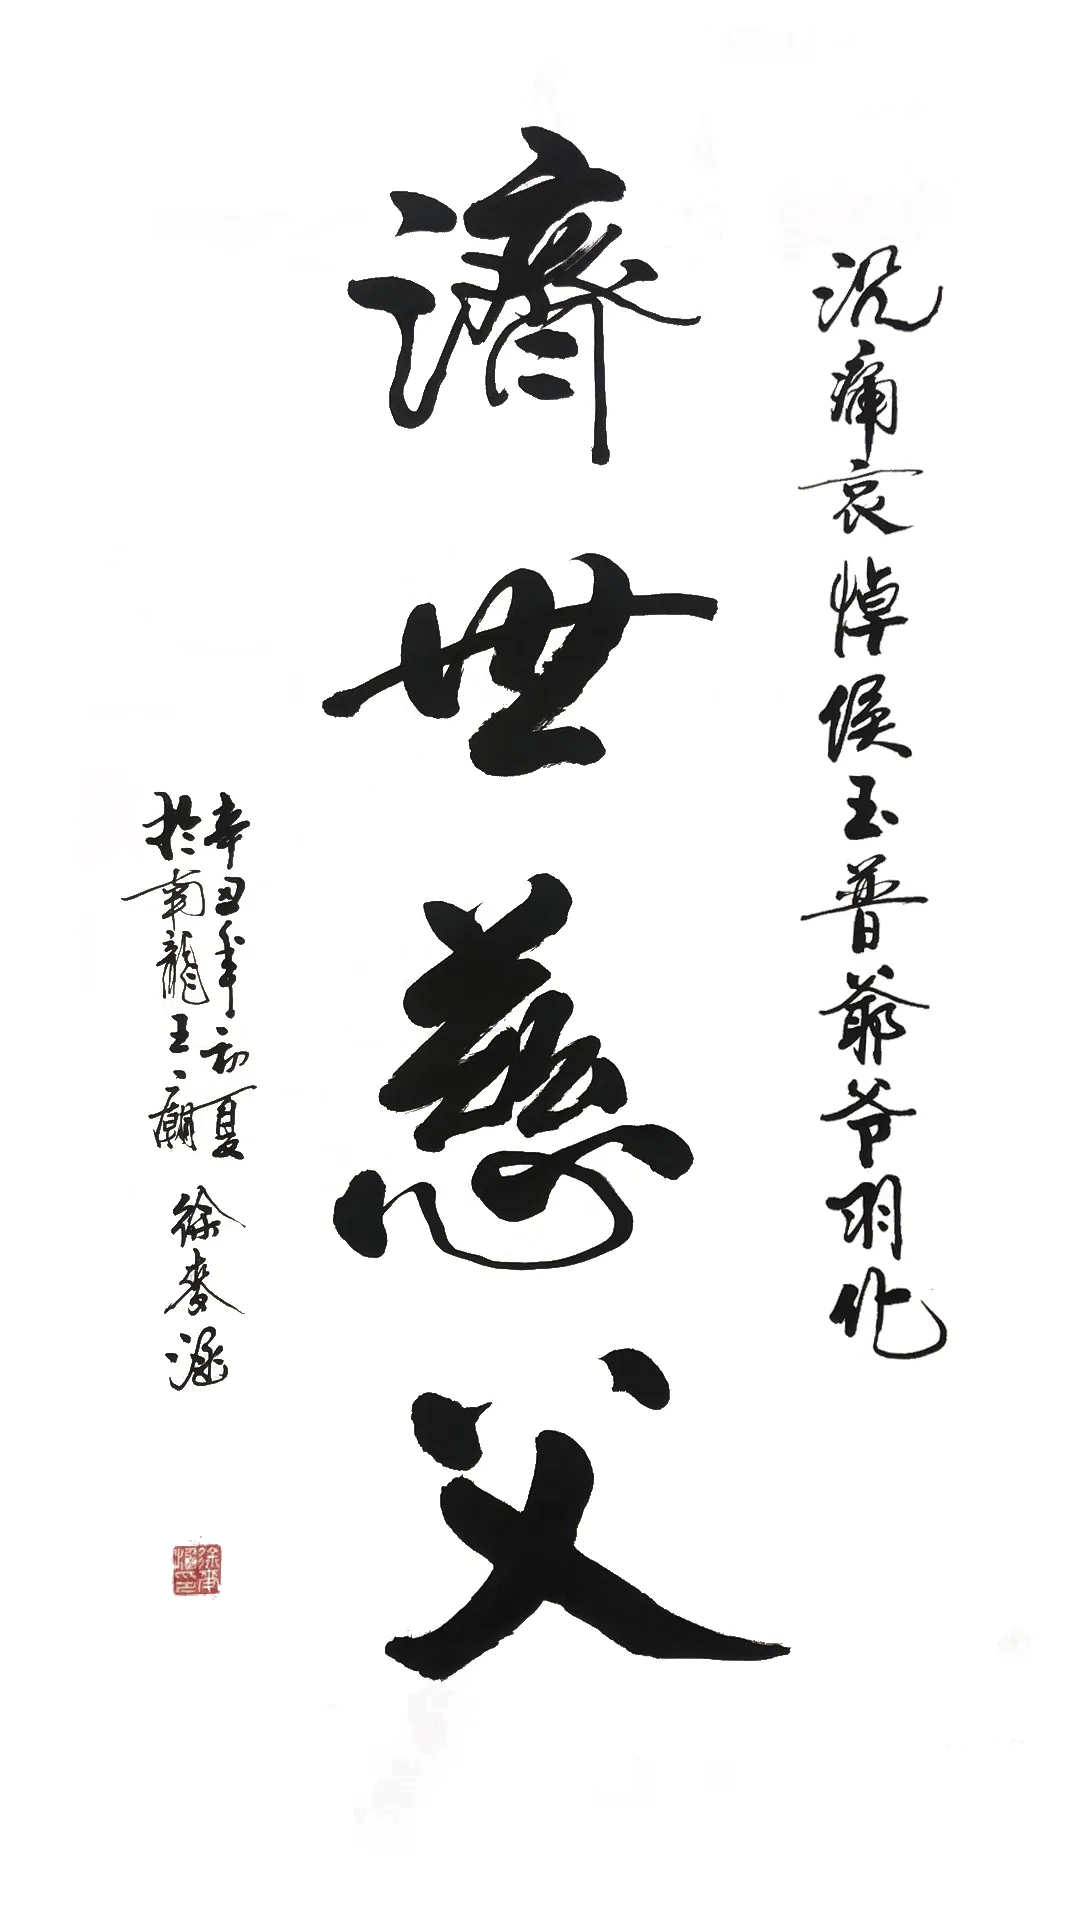 沉痛哀悼侯玉普爺爷羽化
濟世慈父
辛丑年初夏
於南龍王廟
徐麥涵